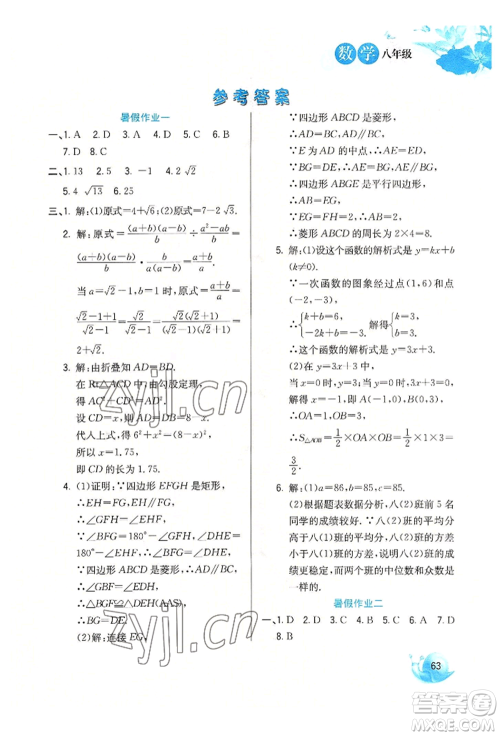 数学 八年级
参考答案
暑假作业一
一、1. A 2. D 3. A 4. C 5. B 6. B
7. D 8. C
二、1. 13 2. 5 3. －1 4. √2
5. 4 √13 6. 25
三、1. 解：(1)原式＝4＋√6；(2)原式＝7－2√3.
2. 解：原式＝(a+b)(a−b)/(a(a+b))÷(a²−b²)/a＝
(a+b)(a−b)/(a(a+b))·a/((a+b)(a−b))＝1/(a+b).
当 a＝√2－1，b＝1 时，原式＝
1/(√2−1+1)＝1/√2＝√2/2.
3. 解：由折叠知 AD＝BD.
在 Rt△ACD 中，由勾股定理，
得 AC²＋CD²＝AD².
设 CD＝x，则 AD＝DB＝8－x.
代人上式，得 6²＋x²＝(8－x)².
解得 x＝1.75.
即 CD 的长为 1.75.
4. (1)证明：∵四边形 EFGH 是矩形，
∴EH＝FG，EH∥FG.
∴∠GFH＝∠EHF.
∵∠BFG＝180°－∠GFH，∠DHE
＝180°－∠EHF，
∴∠BFG＝∠DHE.
∵四边形 ABCD 是菱形，
∴AD∥BC.∴∠GBF＝∠EDH.
∴△BGF≌△DEH(AAS).
∴BG＝DE.
(2)解：连接 EG，
∵四边形 ABCD 是菱形，
∴AD＝BC，AD∥BC.
∵E 为 AD 的中点，∴AE＝ED.
∵BG＝DE，∴AE＝BG，AE∥BG.
∴四边形 ABGE 是平行四边形.
∴AB＝EG.
∵EG＝FH＝2，∴AB＝2.
∴菱形 ABCD 的周长为 8.
5. 解：(1)设这个函数的解析式是 y＝kx＋b
(k≠0).
∵一次函数的图象经过点(1，6)和点
(－2，－3)，
∴{k＋b＝6， －2k＋b＝－3， 解得{k＝3， b＝3.
∴这个函数的解析式是 y＝3x＋3.
(2)∵y＝3x＋3 中，
当 x＝0 时，y＝3；当 y＝0 时，x＝－1，
∴OA＝1，OB＝3.
∴S△AOB＝1/2×OA×OB＝1/2×1×3＝
3/2.
6. 解：(1)a＝86，b＝85，c＝85.
(2)根据题表数据分析，八(2)班前 5 名
同学的成绩较好.∵八(2)班的平均分
高于八(1)班的平均分，八(2)班的方
差小于八(1)班的方差，八(2)班的成
绩更稳定，而两个班的中位数和众数是
一样的.
暑假作业二
一、1. C 2. D 3. C 4. A 5. A 6. D 7. D
8. B
63
zyjl.cn
答案圈
MXQE.COM